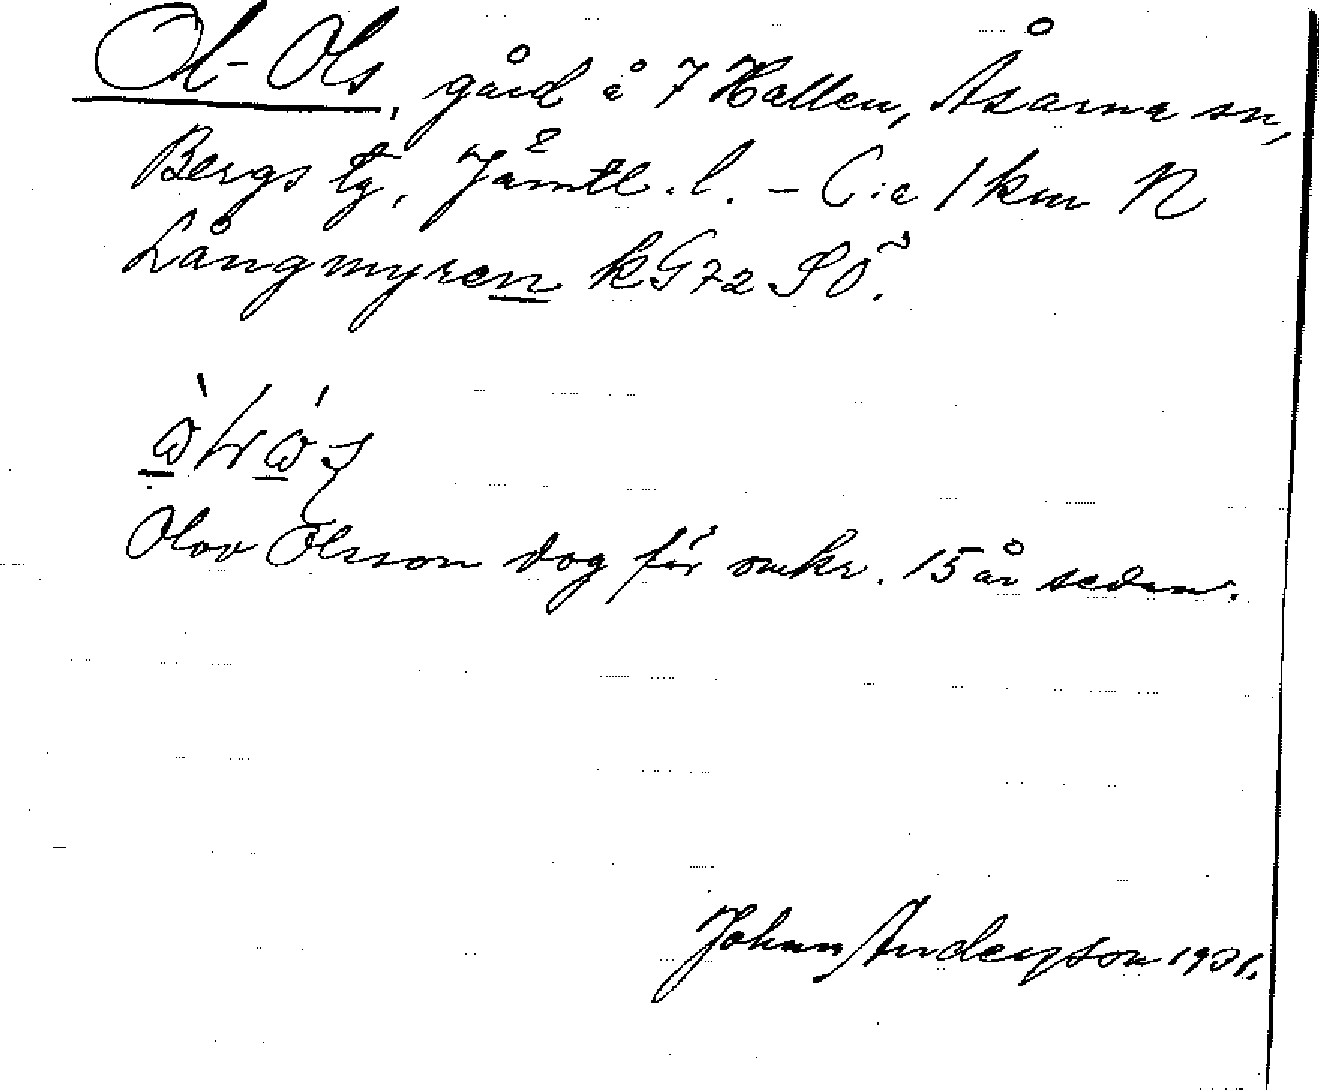 Ol-Ols, gård å 7 Hallen, Åsarna sn,
Bergs tg, Jämtl. l. - C:a 1 km N
Långmyren kG72 SÖ.
Olov Olsson dog för omkr. 15 år sedan.
Johan Anderson 1931.